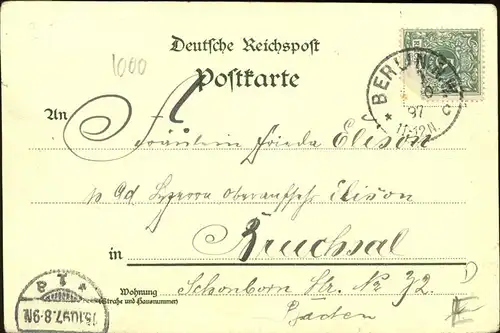 1000
Deutsche Reichspost
Postkarte
BERLIN N.W.
97
An
Fräulein Frieda Elison
p. Ad. Oberaufseh. Elison
in Bruchsal
Wohnung
(Straße und Hausnummer)
Schonborn Str. No 32.
Baden
15.10.97.8-9N.